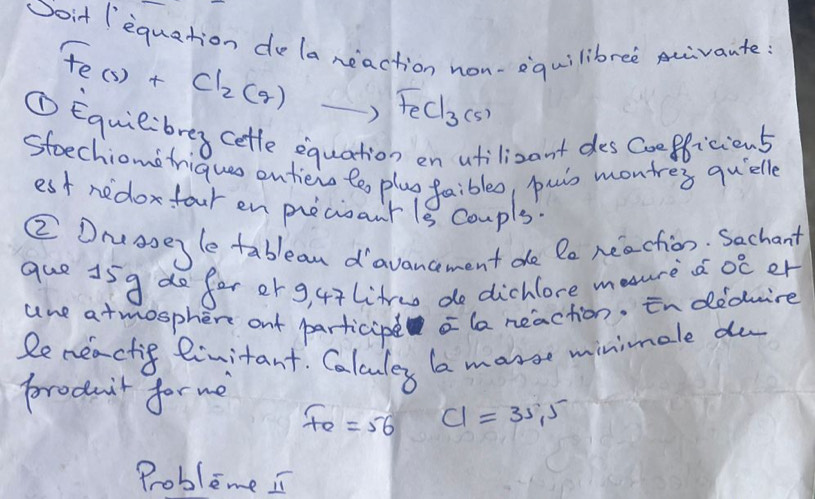 Soit l'équation de la réaction non-équilibreé suivante:
Fe(s) + Cl2(g) → FeCl3(s)
① Équilibrez cette équation en utilisant des Coefficients
stoechiométriques entiers les plus faibles, puis montrez qu'elle
est rédox tout en précisant les Couples.
② Dressez le tableau d'avancement de la réaction. Sachant
que 15g de fer et 9,47 Litres de dichlore mesuré à 0°C et
une atmosphère ont participé à la réaction. En déduire
le réactif limitant. Calculez la masse minimale du
produit formé
Fe = 56 Cl = 35,5
Problème II